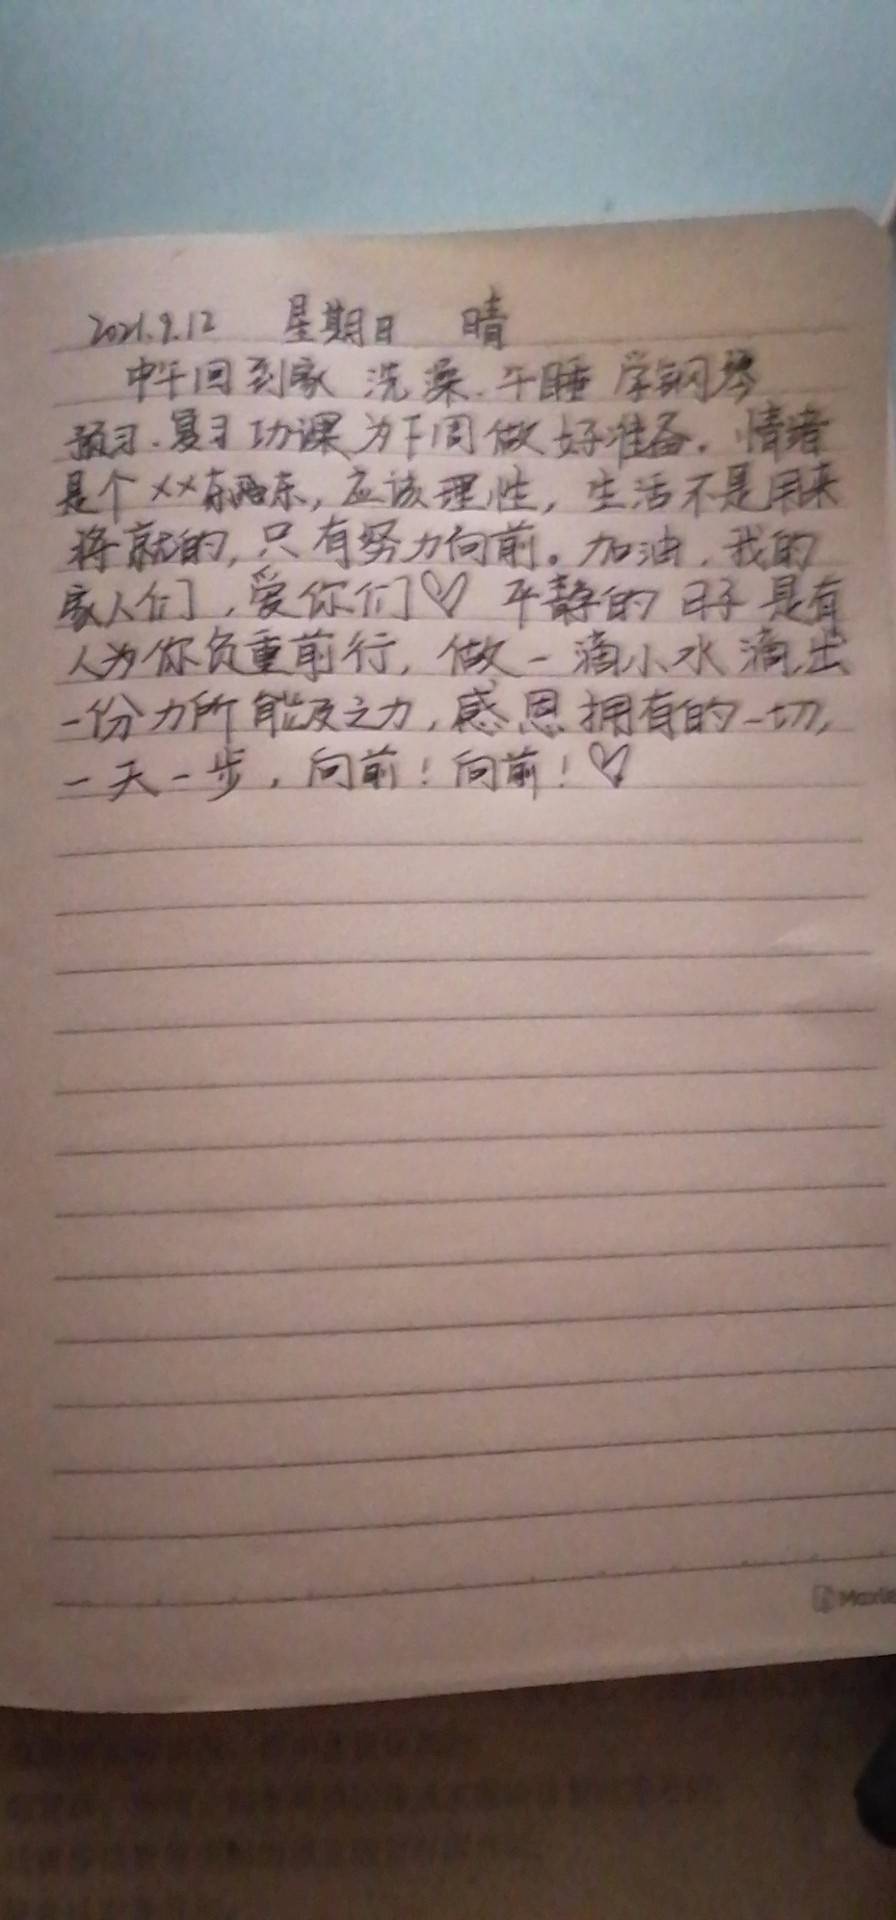 2021.9.12 星期日 晴
中午回到家 洗澡.午睡 学钢琴
预习.复习功课为下周做好准备。情绪
是个××东东，应该理性，生活不是用来
将就的，只有努力向前。加油，我的
家人们，爱你们♡ 平静的日子是有
人为你负重前行，做一滴小水滴，出
一份力所能及之力，感恩拥有的一切，
一天一步，向前！向前！♡